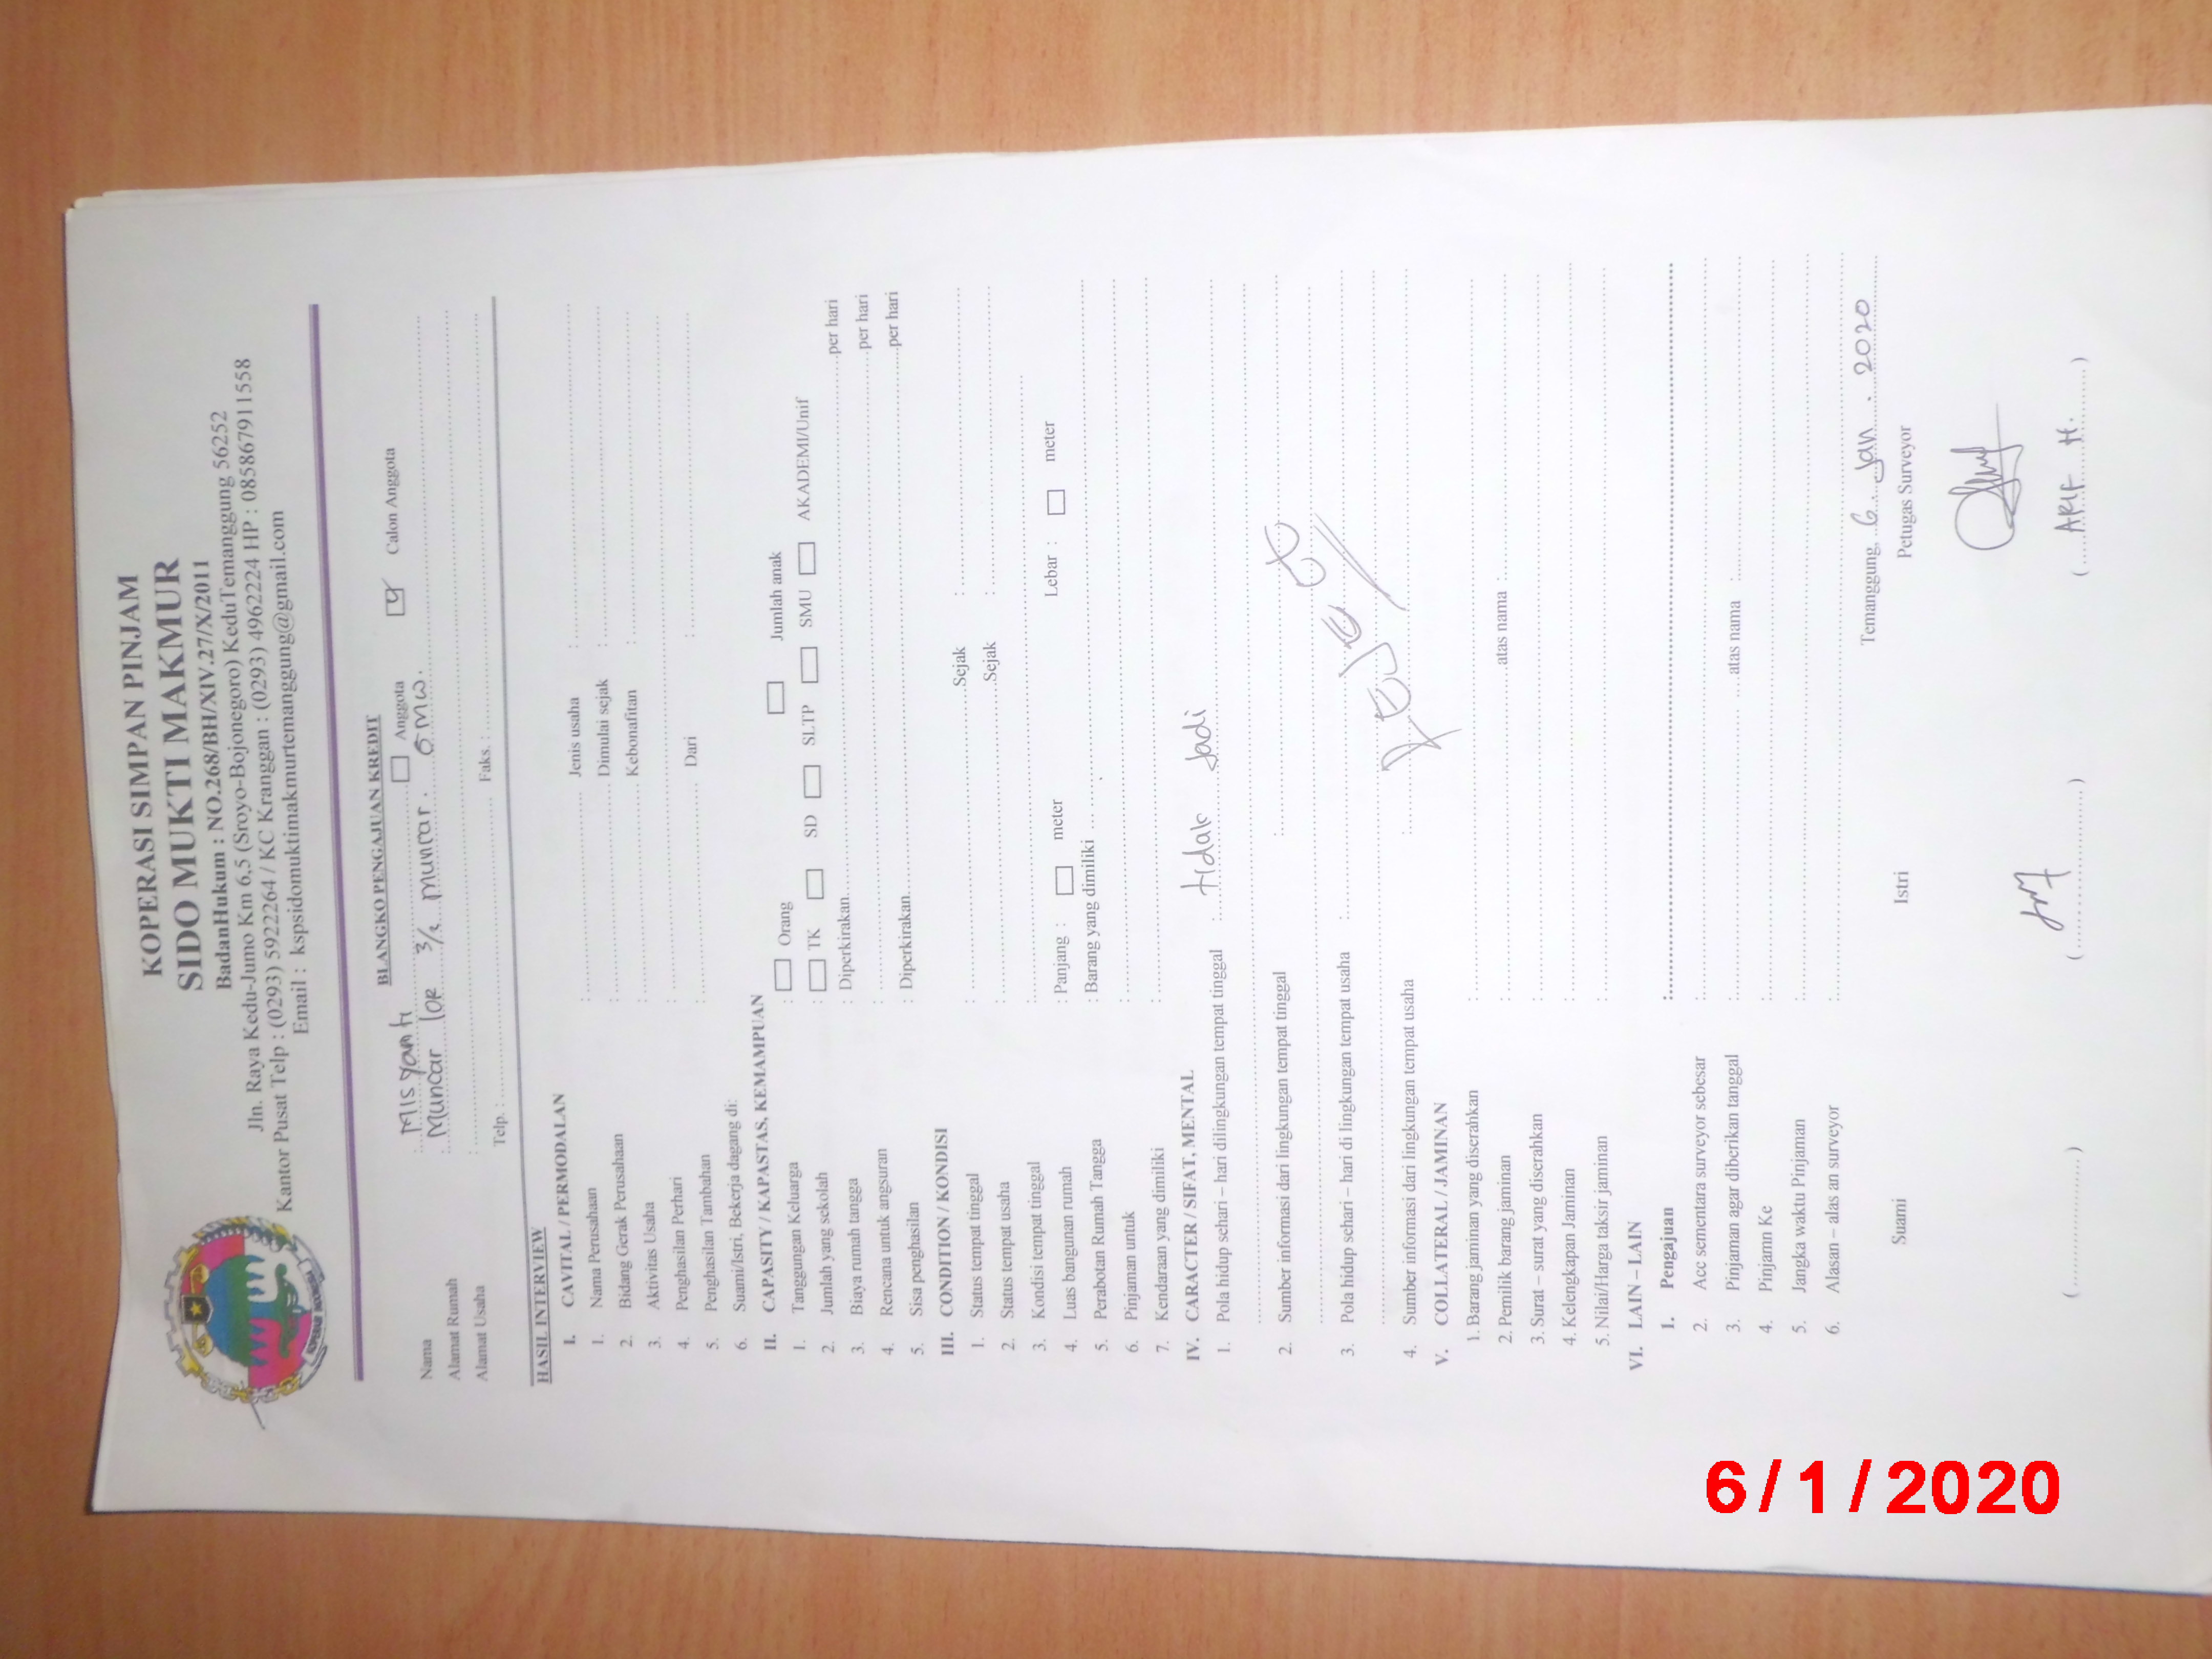 KOPERASI SIMPAN PINJAM
SIDO MUKTI MAKMUR
BadanHukum : NO.268/BH/XIV.27/X/2011
Jln. Raya Kedu-Jumo Km 6,5 (Sroyo-Bojonegoro) KeduTemanggung 56252
Kantor Pusat Telp : (0293) 5922264 / KC Kranggan : (0293) 4962224 HP : 085867911558
Email : kspsidomuktimakmurtemanggung@gmail.com
BLANGKO PENGAJUAN KREDIT
Anggota Calon Anggota
Nama : Misyanti
Alamat Rumah : Muncar lor 3/2 muncar. GMW.
Alamat Usaha :
Telp. : Faks. :
HASIL INTERVIEW
I. CAVITAL / PERMODALAN
1. Nama Perusahaan : Jenis usaha :
2. Bidang Gerak Perusahaan : Dimulai sejak :
3. Aktivitas Usaha : Kebonafitan :
4. Penghasilan Perhari :
5. Penghasilan Tambahan : Dari :
6. Suami/Istri, Bekerja dagang di:
II. CAPASITY / KAPASTAS, KEMAMPUAN
1. Tanggungan Keluarga : Orang Jumlah anak
2. Jumlah yang sekolah : TK SD SLTP SMU AKADEMI/Unif
3. Biaya rumah tangga : Diperkirakan per hari
4. Rencana untuk angsuran : per hari
5. Sisa penghasilan : Diperkirakan per hari
III. CONDITION / KONDISI
1. Status tempat tinggal : Sejak :
2. Status tempat usaha : Sejak :
3. Kondisi tempat tinggal :
4. Luas bangunan rumah : Panjang : meter Lebar : meter
5. Perabotan Rumah Tangga : Barang yang dimiliki
6. Pinjaman untuk :
7. Kendaraan yang dimiliki :
IV. CARACTER / SIFAT, MENTAL
1. Pola hidup sehari – hari dilingkungan tempat tinggal : tidak jadi
2. Sumber informasi dari lingkungan tempat tinggal :
3. Pola hidup sehari – hari di lingkungan tempat usaha :
4. Sumber informasi dari lingkungan tempat usaha :
V. COLLATERAL / JAMINAN
1. Barang jaminan yang diserahkan :
2. Pemilik barang jaminan : atas nama :
3. Surat – surat yang diserahkan :
4. Kelengkapan Jaminan :
5. Nilai/Harga taksir jaminan :
VI. LAIN – LAIN
1. Pengajuan :
2. Acc sementara surveyor sebesar :
3. Pinjaman agar diberikan tanggal : atas nama :
4. Pinjamn Ke :
5. Jangka waktu Pinjaman :
6. Alasan – alas an surveyor :
Temanggung, 6 Jan. 2020
Suami Istri Petugas Surveyor
( ) ( ) ( ARIF H. )
6/1/2020